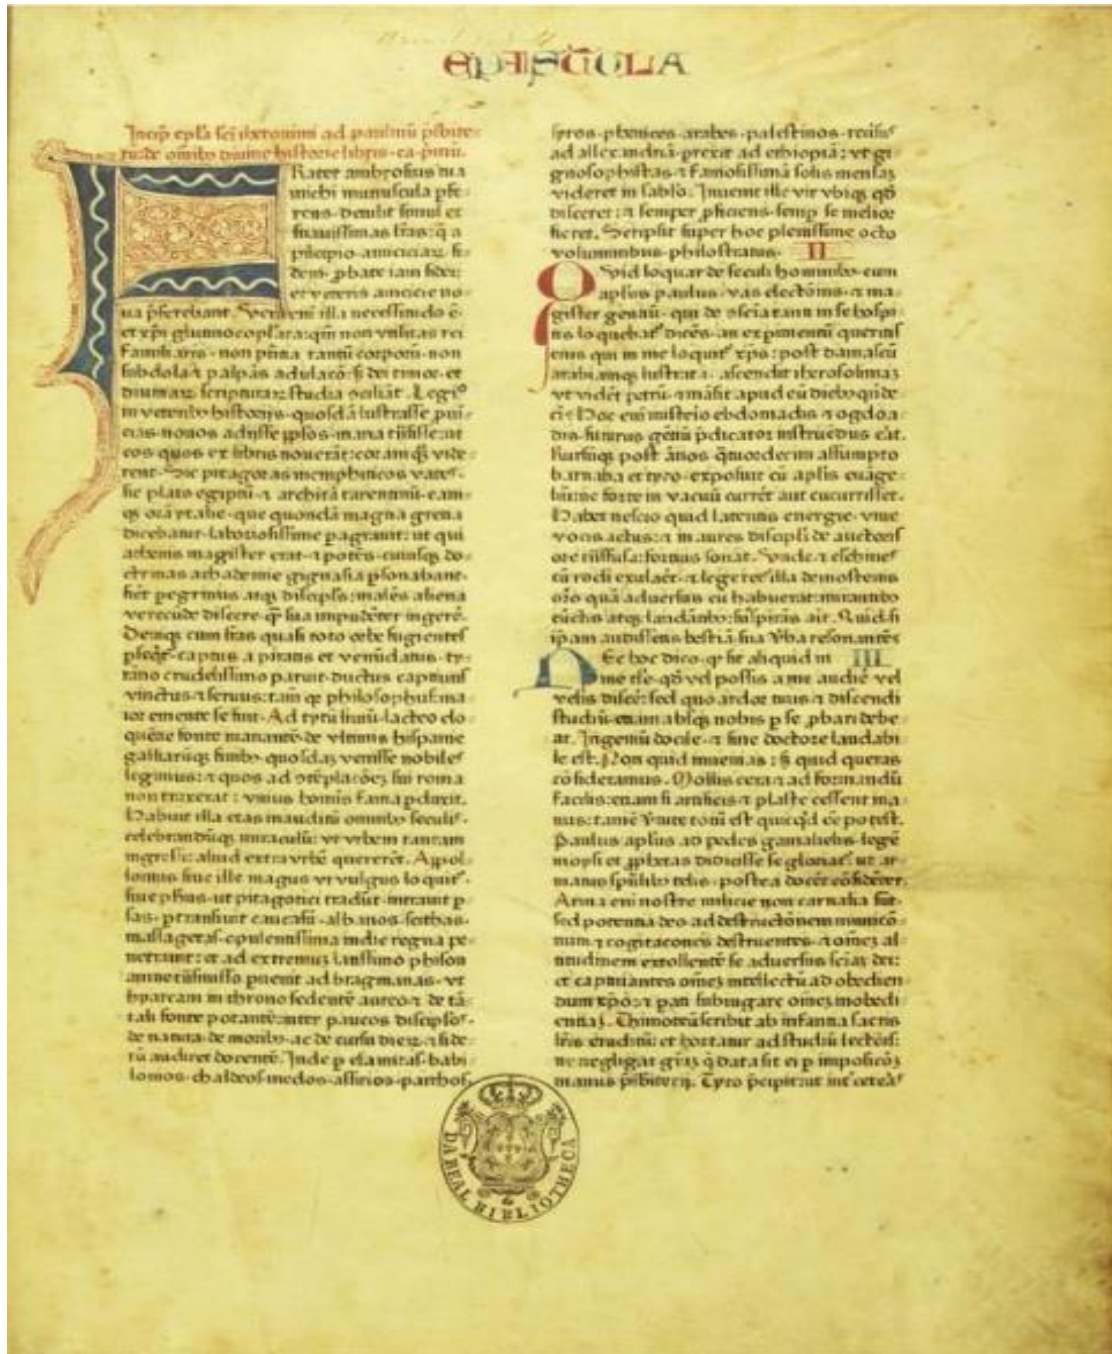 EPISTOLA
Incip̄ epl̄a sc̄i iheronimi ad paulinū p̄sbite-
rū de om̄ibȝ diuine historie libris. ca. p̄mū.
FRater ambrosius tua
michi munuscula pfe-
rens. detulit simul et
suauissimas lr̄as: q̄ a
p̄ncipio amiciciaꝝ fi-
dem. ꝓbate iam fidei:
et veteris amicicie no-
ua p̄ferebant. Vera em̄ illa necessitudo ē.
et xp̄i glutino copl̄ata: qm̄ non vtilitas rei
familiaris. non pn̄tia tantū corporū. non
subdola ⁊ palpās adulacō. sꝫ dei timor. et
diuinaꝝ scripturaꝝ studia ꝯciliāt. Legi⁹
in veteribȝ historijs. quosdā lustrasse puī-
cias. nouos adijsse ppl̄os. maria trāsisse: ut
eos quos ex libris nouerāt: coram qꝫ vide-
rent. Sic pitagoras memphiticos vates.
sic plato egiptū. ⁊ architā tarentinū. eam-
qꝫ orā ytalie. que quondā magna grecia
dicebatur. laboriosissime pagrauit: ut qui
athenis magister erat. ⁊ potēs. cuiusqꝫ do-
ctrinas achademie gignasia psonabant.
fiēt pegrinus atqꝫ discipl̄s: malēs aliena
verecūde discere. qꝫ sua impudēter ingerē.
Deniqꝫ cum lr̄as quasi toto orbe fugientes
pseq̄ret. captus a piratis et venūdatus. ty-
rāno crudelissimo paruit. ductus captiuus
vinctus ⁊ seruus: tam̄ qꝫ philosophus. ma-
ior emente se fuit. Ad tytū liuiū. lacteo elo
quēcie fonte manantē. de vltimis hispanie
galliarūqꝫ finibȝ. quosdaꝫ venisse nobiles
legimus: ⁊ quos ad ꝯtēplacōeꝫ sui roma
non traxerat: vnius homīs fama pduxit.
Habuit illa etas inauditū omnibȝ seculis.
celebrandūqꝫ miraculū: vt vrbem tantam
ingressi: aliud extra vrbē quererēt. Apol-
lonius siue ille magus vt vulgus loquit᷑.
siue ph̄us. ut pitagorici tradūt. intrauit p
sas. ptransiuit caucasū. albanos. scithas.
massagetas. opulentissima indie regna pe-
netrauit: et ad extremuꝫ latissimo phison
amne trāsmisso puenit ad bragmanas. vt
hyarcam in throno sedentē aureo ⁊ de tā-
tali fonte potantē. inter paucos discipl̄os.
de natura. de moribȝ. ac de cursu dieꝝ. ⁊ side-
rū audiret docentē. Inde p elamitas. babi-
lonios. chaldeos. medos. assirios. parthos.
syros. phenices. arabes. palestinos. reūsus
ad allexandriā. prexit ad ethiopiā: vt gi-
gnosophistas. ⁊ famosissimā solis mensaꝫ
videret in sablo. Inuenit ille vir vbiqꝫ qd̄
disceret: ⁊ semper ꝓficiens. semp se melior
fieret. Scripsit super hoc plenissime octo
voluminibus. philostratus. II
QVid loquar de seculi hominibȝ. cum
apl̄us paulus. vas electōnis. ⁊ ma-
gister gentiū. qui de ꝯscīa tanti in se hospi-
tis loquebat᷑ dicēs. an expimentū queritis
eius qui in me loquit᷑ xp̄s: post damascū
arabiamqꝫ lustratā. ascendit iherosolimaꝫ
vt vidēt petrū. ⁊ māsit apud eū diebȝ qn̄de-
cī. Hoc em̄ misterio ebdomadis ⁊ ogdoa-
dis. futurus gētiū p̄dicator instruēdus erāt.
Rursūqꝫ post ānos q̄tuordecim assumpto
barnaba et tyto. exposuit cū apl̄is euāge-
liū: ne forte in vacuū currēt aut cucurrisset.
Habet nescio quid latentis energie. viue
vocis actus: ⁊ in aures discipl̄i de auctoris
ore trāsfusa: forcius sonat. Vnde ⁊ eschines
cū rodi exulāet. ⁊ legeret᷑ illa demostenis
or̄o quā aduersus eū habuerat: mirantibȝ
cūctis atqꝫ laudātibȝ: suspirās ait. Quid si
ip̄am audissetis bestiā. sua v̄ba resonantē.
NEc hoc dico. qꝫ sit aliquid in III
me tale. qd̄ vel possis a me audir̄e vel
velis discēr: sed quo ardor tuus ⁊ discendi
studiū. etiam absqꝫ nobis p se ꝓbari debe-
at. Ingeniū docile. ⁊ sine doctore laudabi-
le est. Non quid inuenias: sꝫ quid queras
cōsideramus. Mollis cera ⁊ ad formandū
facilis: etiam si artificis ⁊ plaste cessent ma-
nus: tamē v̄tute totū est quicqͥd eē potest.
Paulus apl̄us ad pedes gamalielis. legē
moysi et ꝓphetas didicisse se gloriat᷑. ut ar-
matus spūalibȝ telis. postea docēt cōfidēter.
Arma em̄ nostre milicie non carnalia sūt.
sed potentia deo ad destructōnem municō-
num ⁊ cogitacōnes destruentes. ⁊ om̄eꝫ al-
titudinem extollentē se aduersus sciāꝫ dei:
et captiuantes om̄eꝫ intellectū ad obedien-
dum xp̄o: ⁊ pati subiugare om̄eꝫ inobedi-
entiaꝫ. Thimoteū scribit ab infantia sacris
lr̄is eruditū: et hortatur ad studiū lectōis:
ne negligat grāꝫ q̄ data sit ei p imposicōꝫ
manus p̄sbiterij. Tyto p̄cipit: ut int᷑ ceteras
DA REAL BIBLIOTHECA